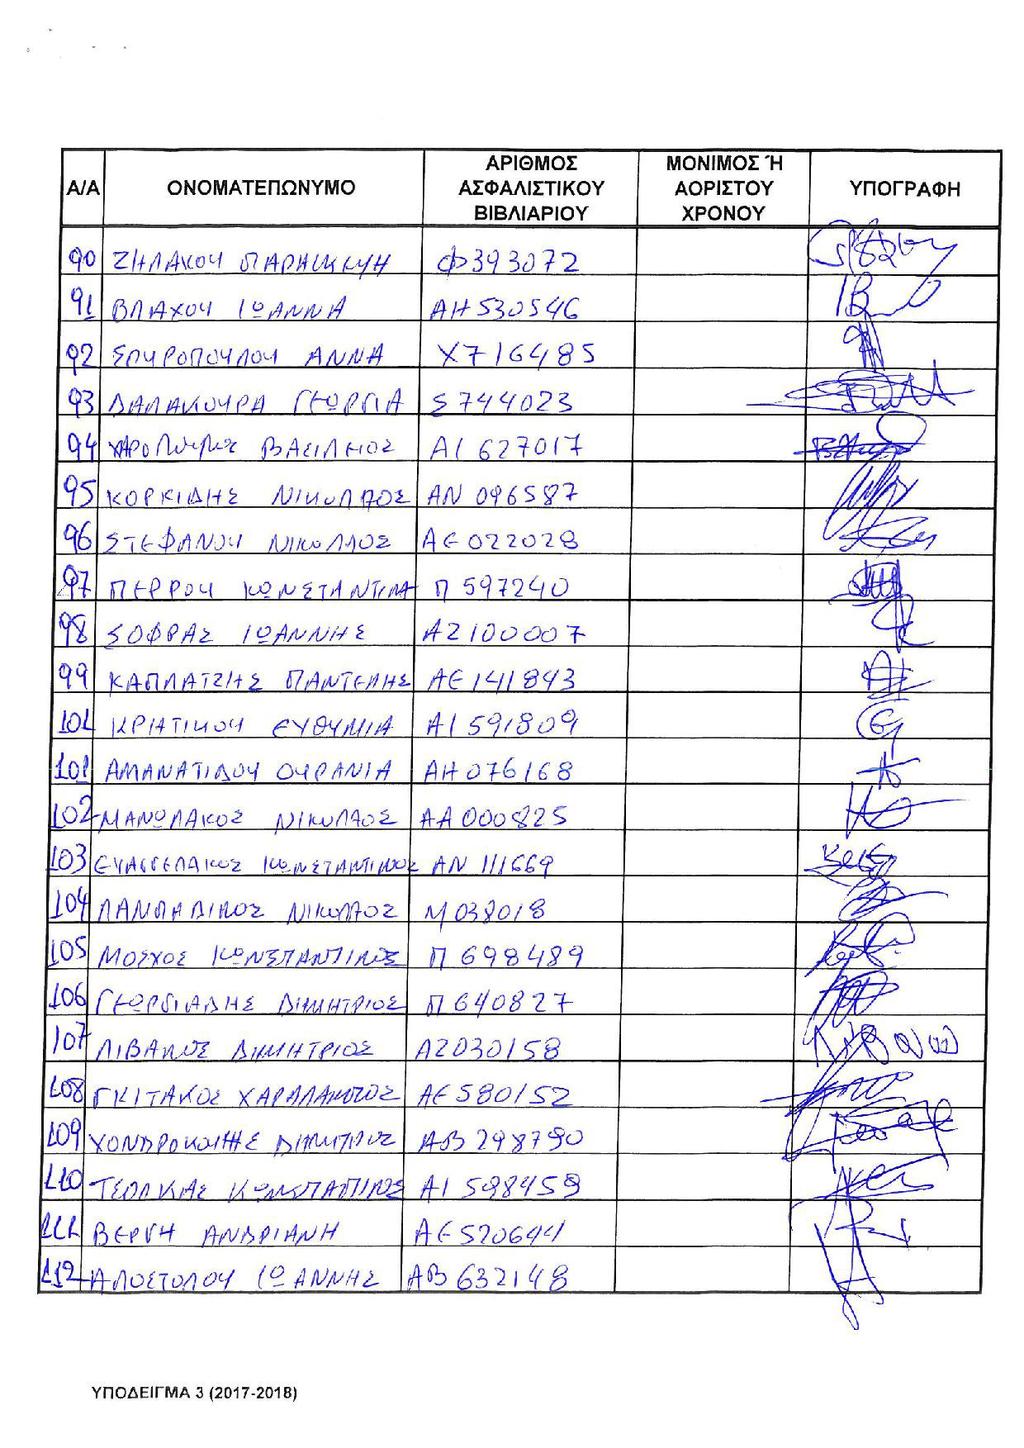 Α/Α ΟΝΟΜΑΤΕΠΩΝΥΜΟ ΑΡΙΘΜΟΣ ΑΣΦΑΛΙΣΤΙΚΟΥ ΒΙΒΛΙΑΡΙΟΥ ΜΟΝΙΜΟΣ Ή ΑΟΡΙΣΤΟΥ ΧΡΟΝΟΥ ΥΠΟΓΡΑΦΗ
90 ΖΗΛΑΚΟΥ ΠΑΡΑΣΚΕΥΗ Φ393072
91 ΒΛΑΧΟΥ ΙΩΑΝΝΑ ΑΗ530546
92 ΣΠΥΡΟΠΟΥΛΟΥ ΑΝΝΑ Χ716485
93 ΔΑΛΑΚΟΥΡΑ ΓΕΩΡΓΙΑ Σ744023
94 ΒΑΣΙΛΕΙΟΣ ΑΙ 627017
95 ΚΟΡΚΙΔΗΣ ΝΙΚΟΛΑΟΣ ΑΝ 096587
96 ΣΤΕΦΑΝΟΥ ΝΙΚΟΛΑΟΣ ΑΕ 022028
97 ΠΕΡΡΟΥ ΚΩΝΣΤΑΝΤΙΝΑ Π 597240
98 ΣΟΦΡΑΣ ΙΩΑΝΝΗΣ ΑΖ100007
99 ΚΑΠΛΑΤΖΗΣ ΠΑΝΤΕΛΗΣ ΑΕ 141843
101 ΚΡΙΑΤΙΚΟΥ ΕΥΘΥΜΙΑ ΑΙ 591809
101 ΑΜΑΝΑΤΙΔΟΥ ΟΥΡΑΝΙΑ ΑΗ076168
102 ΜΑΝΩΛΑΚΟΣ ΝΙΚΟΛΑΟΣ ΑΑ 000825
103 ΕΥΑΓΓΕΛΑΚΟΣ ΚΩΝΣΤΑΝΤΙΝΟΣ ΑΝ 111669
104 ΝΙΚΟΛΑΟΣ Μ 038018
105 ΜΟΣΧΟΣ ΚΩΝΣΤΑΝΤΙΝΟΣ Π 698489
106 ΓΕΩΡΓΙΑΔΗΣ ΔΙΜΗΤΡΙΟΣ Π 640827
107 ΛΙΒΑΝΟΣ ΔΙΜΗΤΡΙΟΣ ΑΖ030158
108 ΓΚΙΤΑΚΟΣ ΧΑΡΑΛΑΜΠΟΣ ΑΕ 580152
109 ΑΒ 298790
110 ΚΩΝΣΤΑΝΤΙΝΟΣ ΑΙ 598459
111 ΒΕΡΓΗ ΑΝΔΡΙΑΝΗ ΑΕ520644
112 ΑΠΟΣΤΟΛΟΥ ΙΩΑΝΝΗΣ ΑΒ 632148
ΥΠΟΔΕΙΓΜΑ 3 (2017-2018)